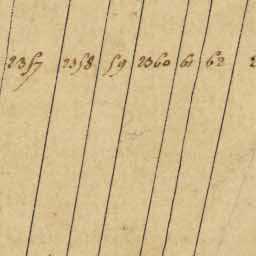 2357 2358 59 2360 61 62 2